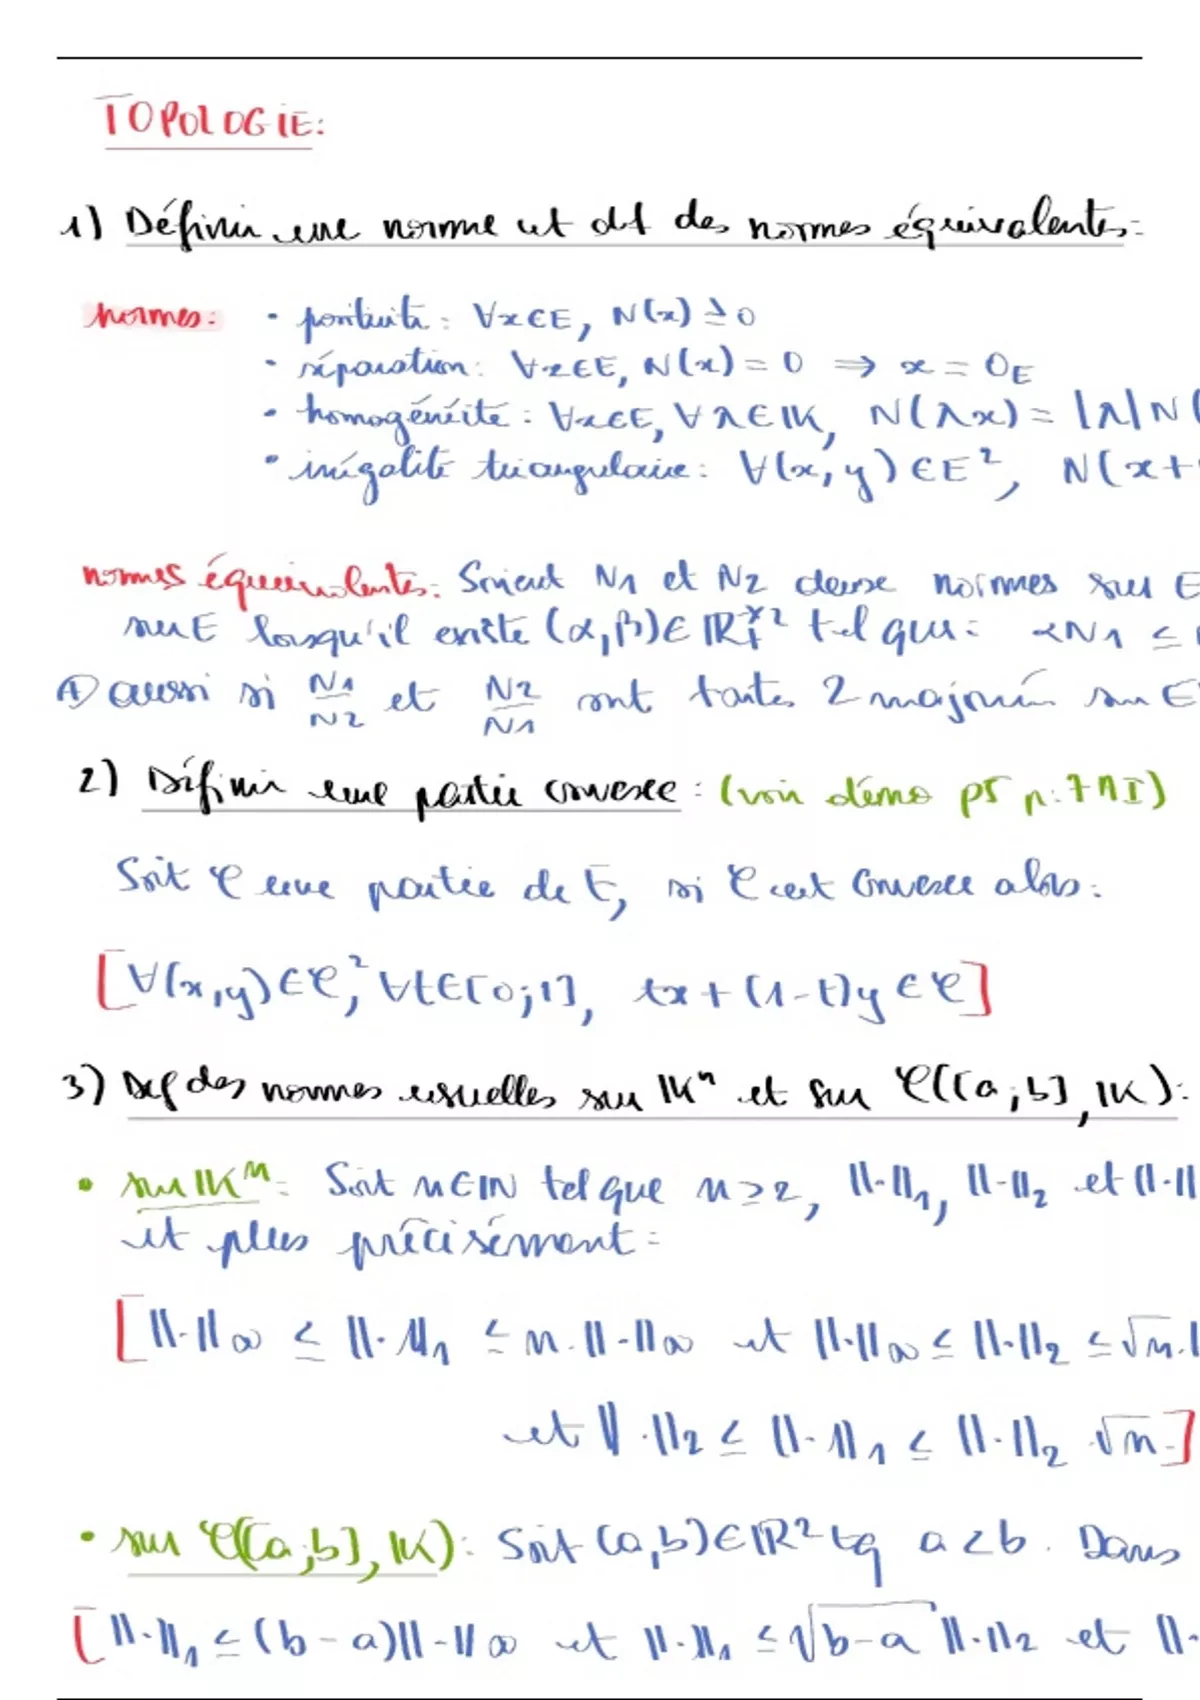 TOPOLOGIE:
1) Définir une norme et def des normes équivalentes:
normes: • positivité: ∀x∈E, N(x) ≥ 0
• séparation: ∀x∈E, N(x) = 0 ⇒ x = 0_E
• homogénéité: ∀x∈E, ∀λ∈𝕂, N(λx) = |λ|N(
• inégalité triangulaire: ∀(x,y)∈E², N(x+
normes équivalentes: Soient N1 et N2 deux normes sur E
sur E lorsqu'il existe (α,β)∈ℝ₊*² tel que: αN1 ≤
aussi si N1/N2 et N2/N1 sont toutes 2 majorées sur E
2) Définir une partie convexe: (voir démo p5 n:7 MI)
Soit C une partie de E, si C est convexe alors:
[∀(x,y)∈C², ∀t∈[0;1], tx+(1-t)y∈C]
3) Def des normes usuelles sur 𝕂ⁿ et sur C([a;b],𝕂):
• sur 𝕂ⁿ: Soit n∈ℕ tel que n≥2, ‖·‖₁, ‖·‖₂ et ‖·‖
et plus précisément:
[‖·‖∞ ≤ ‖·‖₁ ≤ n.‖·‖∞ et ‖·‖∞ ≤ ‖·‖₂ ≤ √n.‖
et ‖·‖₂ ≤ ‖·‖₁ ≤ ‖·‖₂ √n.]
• sur C([a;b],𝕂): Soit (a,b)∈ℝ² tq a<b. Dans
[‖·‖₁ ≤ (b-a)‖·‖∞ et ‖·‖₁ ≤ √b-a ‖·‖₂ et ‖·